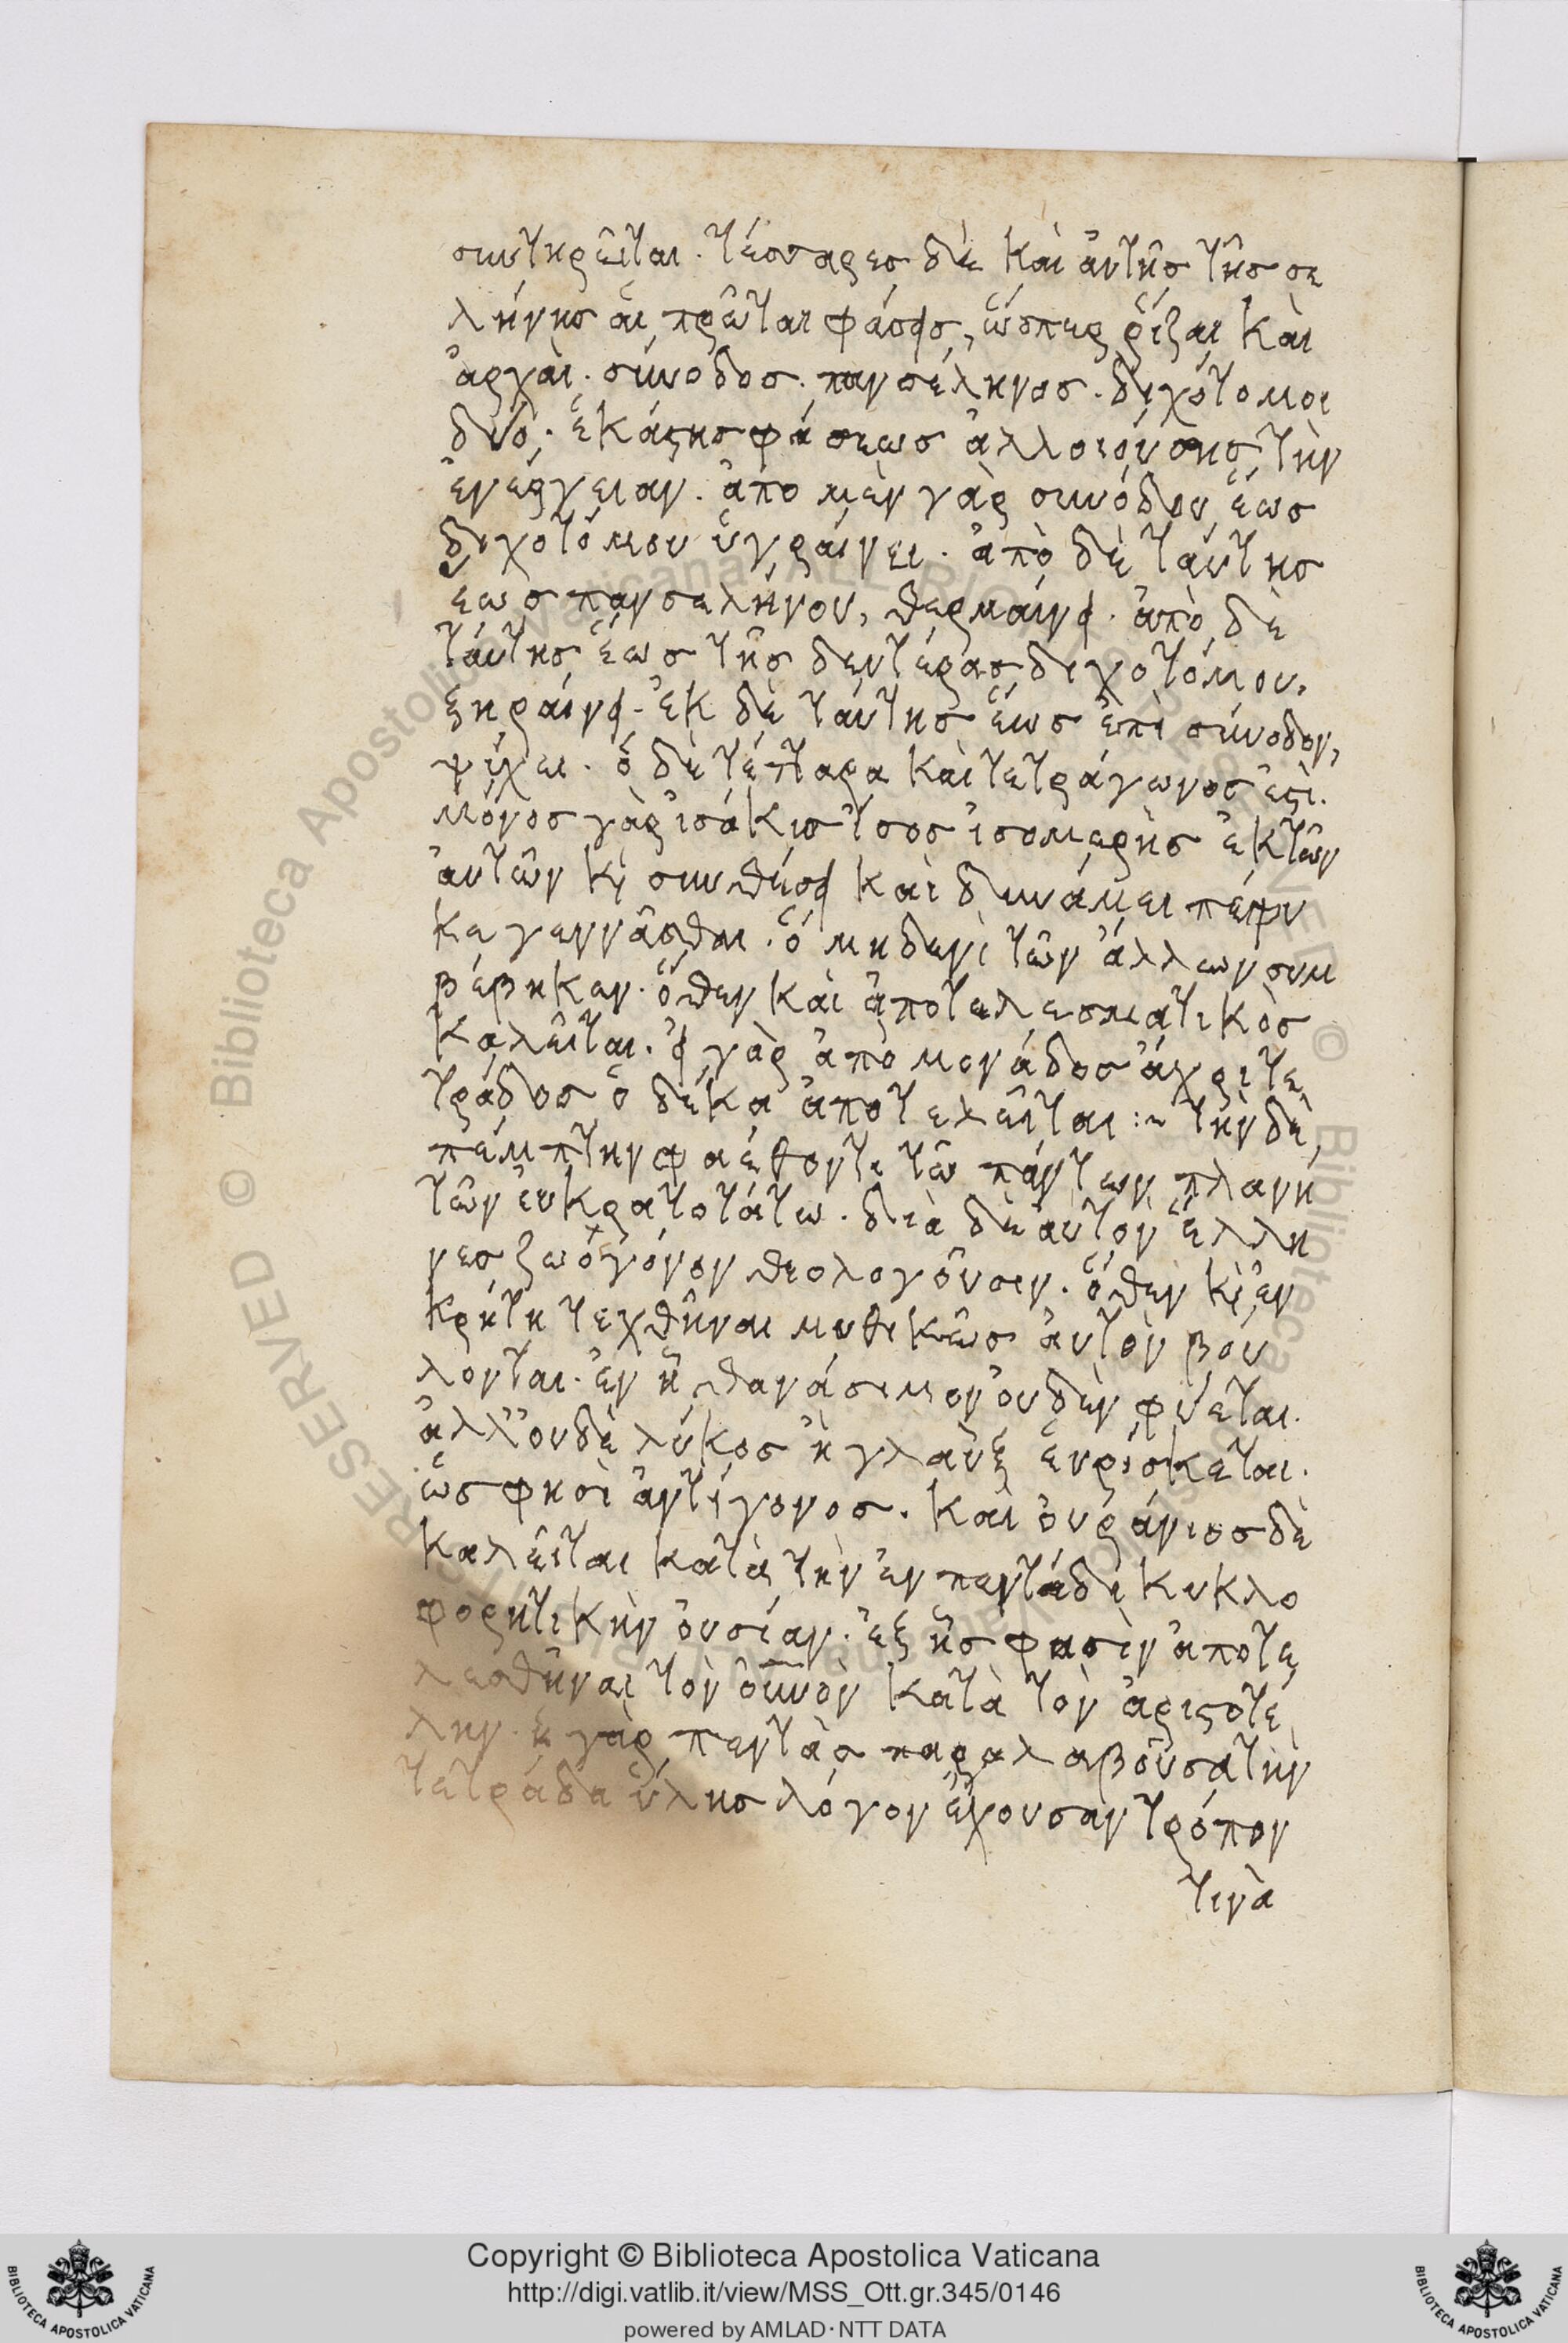 συντηρεῖται. τέσσαρες δὲ καὶ ἀυτῆς τῆς σε
λήνης αἱ πρῶται φάσεις, ὥσπερ ῥίζαι καὶ
ἀρχαὶ. σύνοδος. πανσέληνος. διχότομοι
δυό. ἑκάστης φάσεως ἀλλοιούσης τὴν
ἐνέργειαν. ἀπο μὲν γὰρ συνόδου ἕως
διχοτόμου ὑγραίνει. ἀπὸ δὲ ταύτης
εως πανσελήνου, θερμαίνει. ἀπὸ δὲ
ταύτης ἕως τῆς δευτέρας διχοτόμου,
ξηραίνει. ἐκ δὲ ταύτης ἕως ἐπὶ σύνοδον,
ψύχει. ὁ δὲ τέτταρα καὶ τετράγωνος ἐστὶ.
μόνος γὰρ ἰσάκις ἴσος ἰσομερὴς ἐκ τῶν
ἀυτῶν κὶ συνθέσει καὶ δυνάμει πέφυ
κε γεννᾶσθαι. ὃ μηδενὶ τῶν ἄλλων συμ
βέβηκεν. ὅθεν καὶ ἀποτελεσματικὸς
καλεῖται. εἰ γὰρ ἀπὸ μονάδος ἄχρι τε
τράδος ὁ δέκα ἀποτελεῖται :~ τὴν δὲ
πέμπτην φαέθοντι τῶ πάντων πλανή
των ἐυκρατοτάτω. διὰ δὲ ἀυτὸν ἕλλη
νες ζωόγόνον θεολογοῦσιν. ὅθεν κὶ ἐν
κρήτη τεχθῆναι μυθικῶς ἀυτὸν βού
λονται. ἐν ᾗ θανάσιμον ὀυδὲν φύεται.
ἀλλ' ὀυδὲ λύκος ἢ γλαῦξ ἑυρίσκεται.
ὥς φησὶ ἀντίγονος. καὶ ὀυράνιος δὲ
καλεῖται κατὰ τὴν ἐν πεντάδι κυκλο
φορητικὴν ὀυσίαν. ἐξ ἧς φασὶν ἀποτε
λεσθῆναι τὸν ὀυνὸν κατὰ τὸν ἀριστοτέ
λην. ἡ γὰρ πεντὰς παραλαβοῦσα τὴν
τετράδα ὕλης λόγον ἔχουσαν τρόπον
τινὰ
Copyright © Biblioteca Apostolica Vaticana
http://digi.vatlib.it/view/MSS_Ott.gr.345/0146
powered by AMLAD·NTT DATA